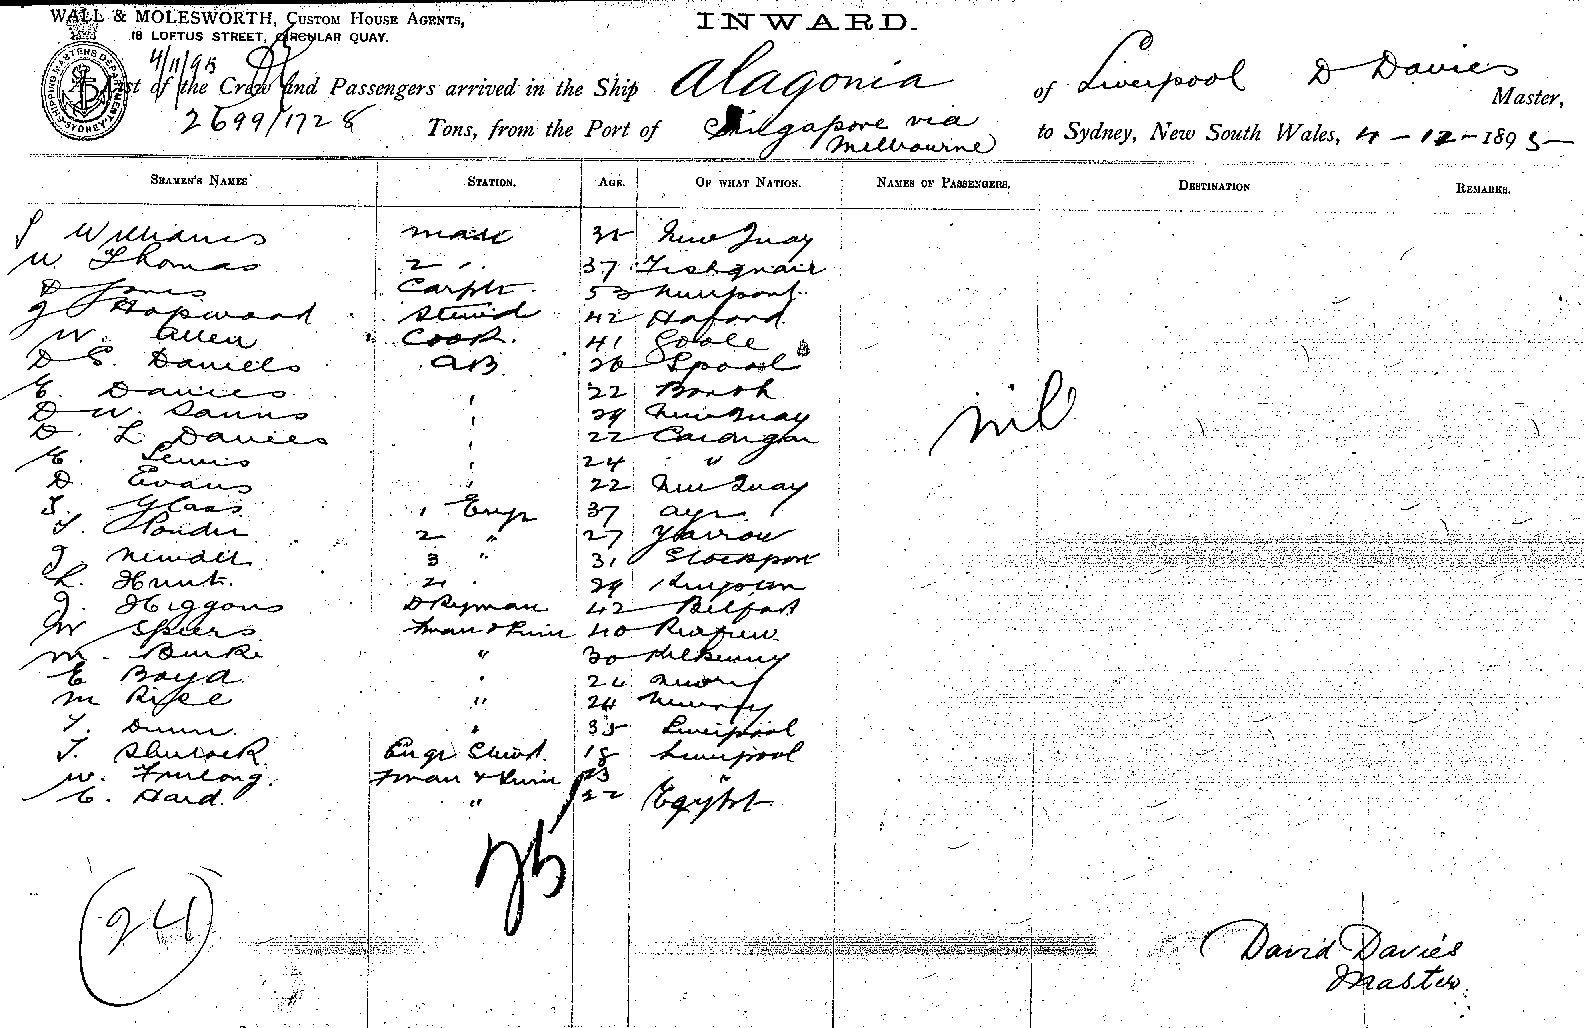 WALL & MOLESWORTH, CUSTOM HOUSE AGENTS,
18 LOFTUS STREET, CIRCULAR QUAY.
INWARD.
List of the Crew and Passengers arrived in the Ship Alagonia of Liverpool D Davies Master,
2699/1728 Tons, from the Port of Singapore via Melbourne to Sydney, New South Wales, 4-12-1895
SEAMEN'S NAMES STATION. AGE. OF WHAT NATION. NAMES OF PASSENGERS. DESTINATION REMARKS.
Williams Mate 35 New Quay
W. Thomas 2 " 37
D Jones Carptr 53 Newport
Hopwood Stewd 42
W. Allen Cook. 41 Goole
D E. Daniels AB 26
E. Davies " 22 Borth
D W. " 29 New Quay
D. L Davies " 22 Cardigan
E. Lewis " 24 "
D. Evans " 22 New Quay
Glass 1 Engr 37 Ayr
2 " 27 Yarrow
3 " 31 Stockport
Hunt. 29
J. Higgons DKeyman 42 Belfast
W Spiers Fman & Trim 40 Renfrew
M. Burke " 30 Kilkenny
E Boyd " Newry
M " 24 Newry
T. Dunn. " 35 Liverpool
T. Engr Stwd. 18 Liverpool
W. Furlong. Fman & Trim 23 "
E. Hard. " 22 Egypt
nil
25
(24)
David Davies
Master